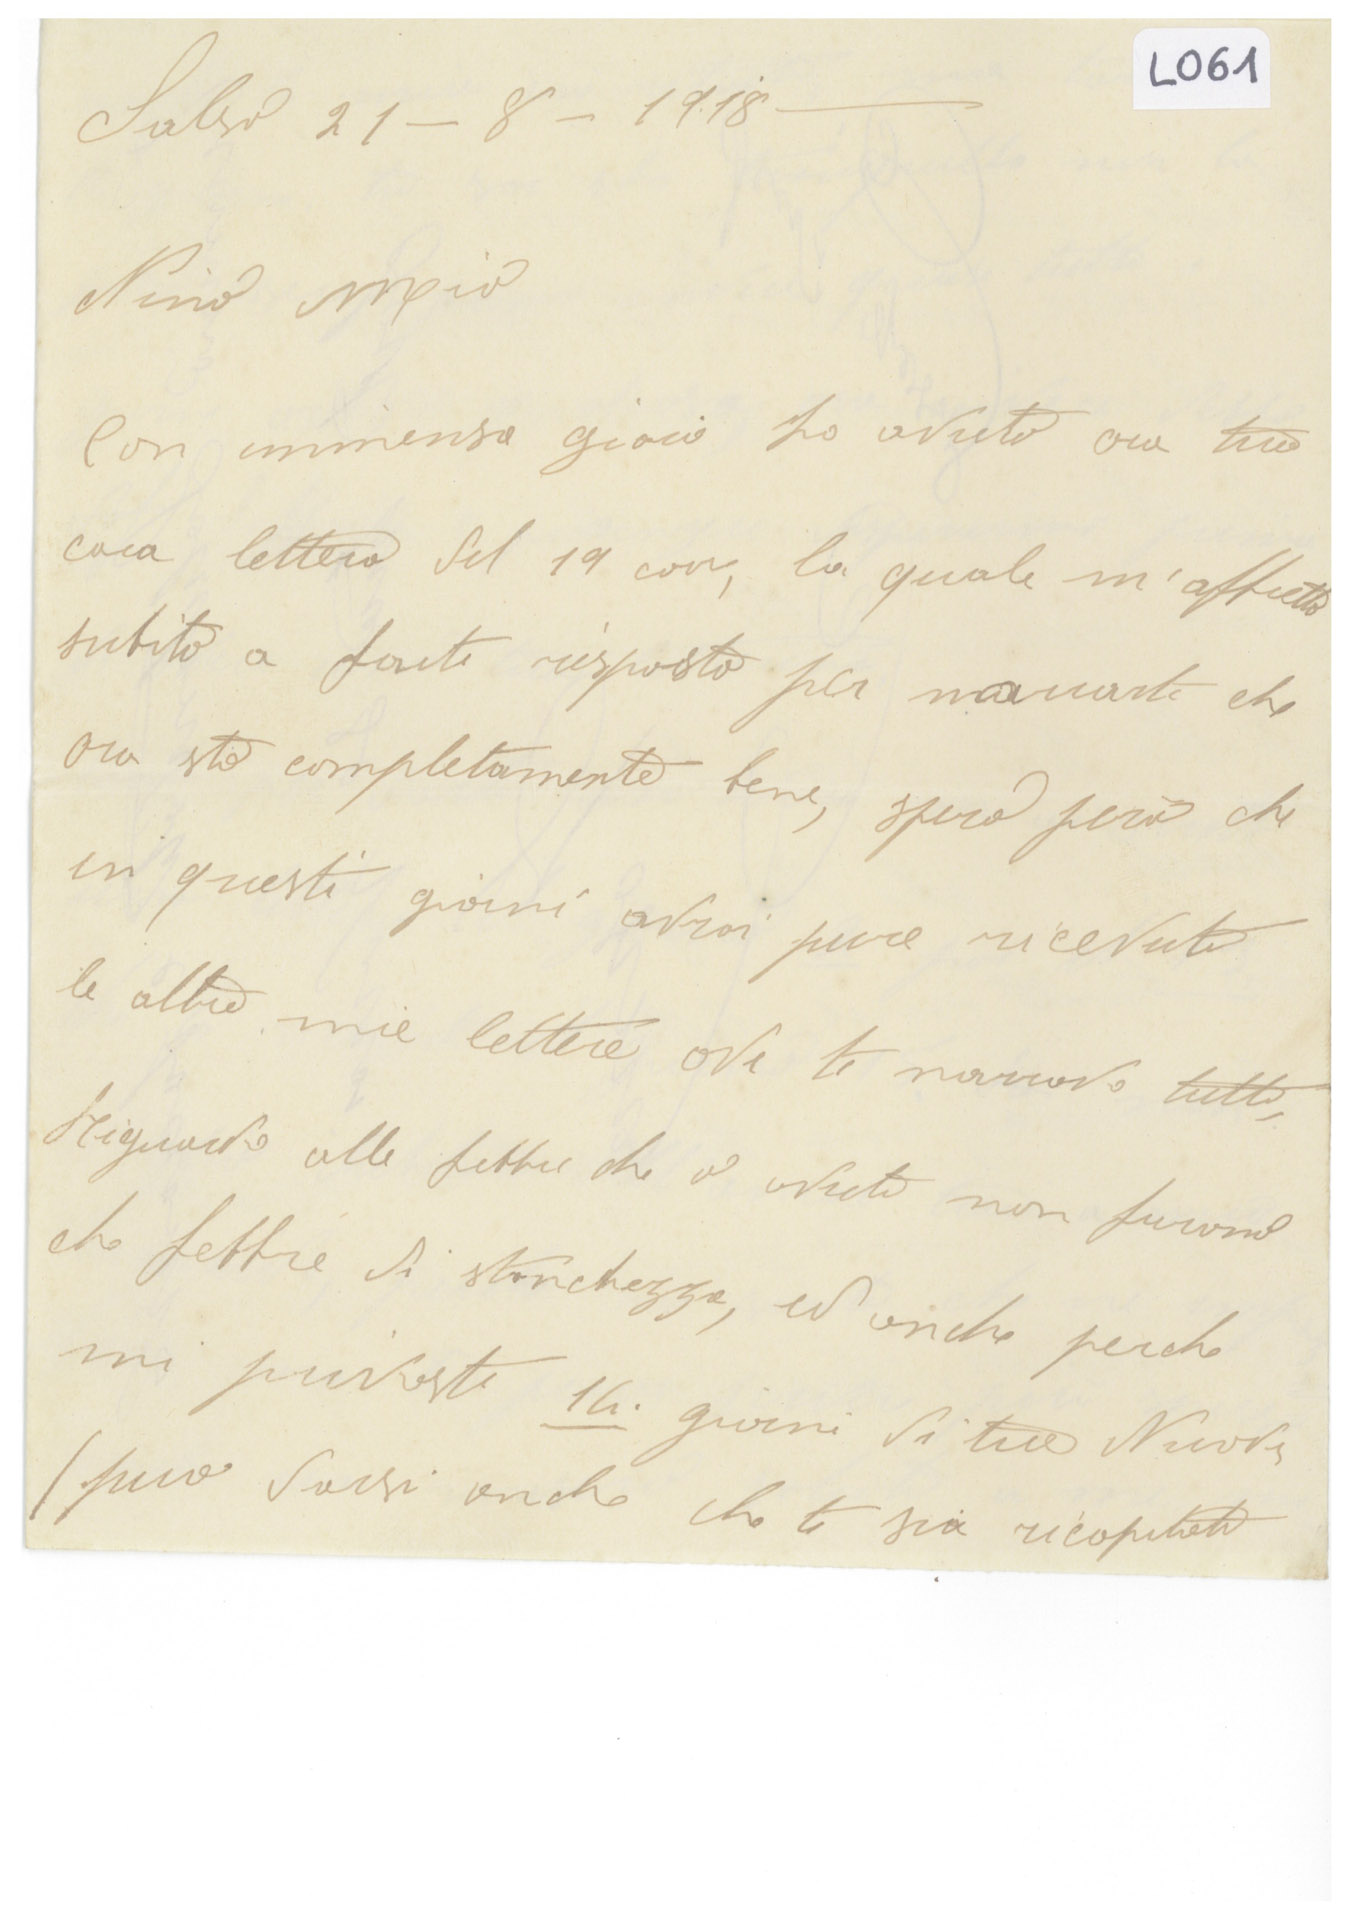 L061
Salsò 21 - 8 - 1918
Nino mio
Con immensa gioia ho avuto ora tua
cara lettera del 19 corr, la quale m'affretto
subito a farti risposta per narrarti che
ora sto completamente bene, spero però che
in questi giorni avrai pure ricevute
le altre mie lettere ove ti narravo tutto,
Riguardo alle febbri che ò avute non furono
che febbre di stanchezza, ed anche perche
mi privaste giorni di tue Nuove
(può darsi anche che ti sia ricapitato